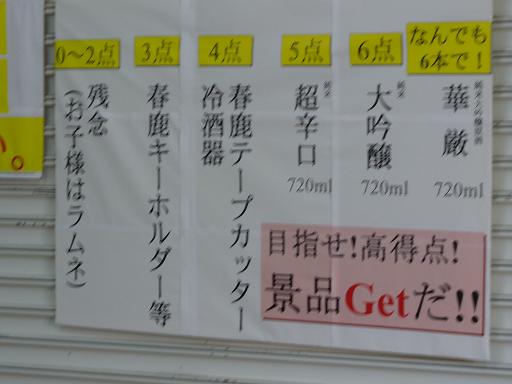 なんでも
6本で!
純米大吟醸原酒
華厳
720ml
6点
純米
大吟醸
720ml
5点
純米
超辛口
720ml
4点
春鹿テープカッター
冷酒器
3点
春鹿キーホルダー等
0～2点
残念
(お子様はラムネ)
目指せ!高得点!
景品Getだ!!
い。